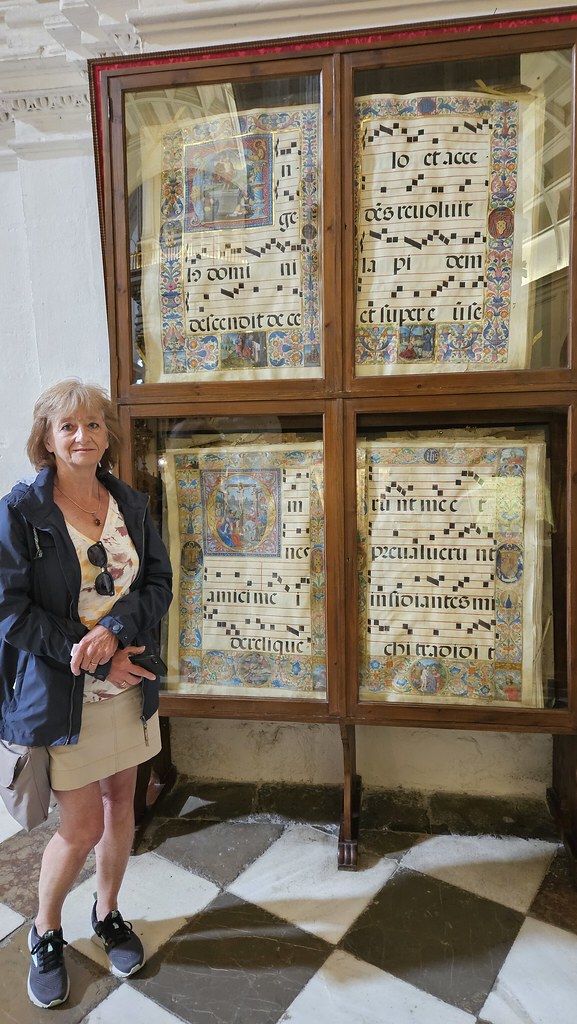 n
ge
lꝰ domi ni
descendit de ce
lo et acce
dēs revoluit
la pi dem
et super e ūse
m
nes
amici me i
derelique
rū nt me e t
prevalueru nt
insidiantes mi
chi tradidi t